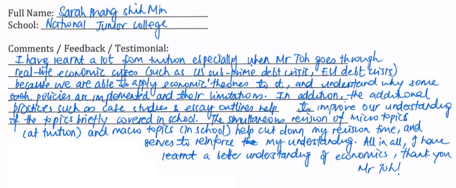 Full Name: Sarah Phang Shih Min
School: National Junior College
Comments / Feedback / Testimonial:
I have learnt a lot from tuition especially when Mr Toh goes through
real-life economic crises (such as US sub-prime debt crisis, EU debt crisis)
because we are able to apply economic theories to it, and understand why some
such policies are implemented and their limitations. In addition, the additional
practices such as case studies & essay outlines help to improve our understanding
of the topics briefly covered in school. The simultaneous revision of micro topics
(at tuition) and macro topics (in school) help cut down my revision time, and
serves to reinforce my understanding. All in all, I have
learnt a better understanding of economics, thank you
Mr Toh!